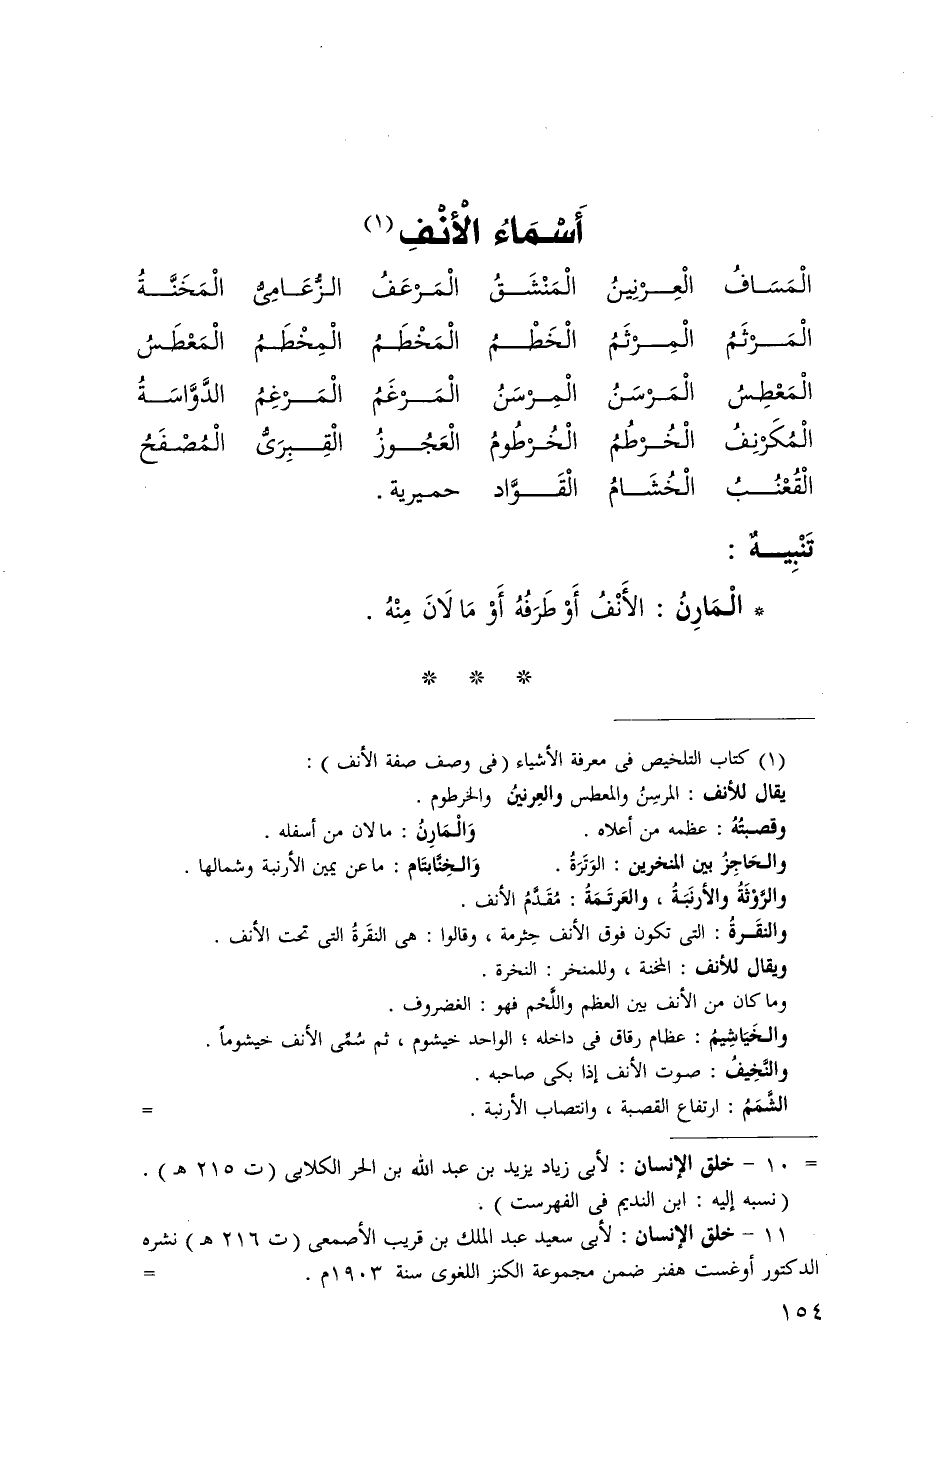 أَسْمَاءُ الْأَنْفِ (١)
الْمَسَافُ الْعِرْنِينُ الْمَنْشَقُ الْمَرْعَفُ الزُّعَامِىُّ الْمَخَنَّةُ
الْمَرْثَمُ الْمِرْثَمُ الْخَطْمُ الْمَخْطَمُ الْمِخْطَمُ الْمَعْطَسُ
الْمَعْطِسُ الْمَرْسَنُ الْمِرْسَنُ الْمَرْغَمُ الْمَرْغِمُ الذَّوَّاسَةُ
الْمُكَرْنِفُ الْخُرْطُمُ الْخُرْطُومُ الْعَجُوزُ الْقِبِرَىُّ الْمُصْفَحُ
الْقُعْنُبُ الْخُشَامُ الْقَوَّاد حميرية .
تَنْبِيهٌ :
* الْمَارِنُ : الأَنْفُ أَوْ طَرَفُهُ أَوْ مَا لَانَ مِنْهُ .
* * *
(١) كتاب التلخيص فى معرفة الأشياء (فى وصف صفة الأنف ) :
يقال للأنف : المرسِنُ والمعطس والعِرنينُ والخرطوم .
وقصبتُهُ : عظمه من أعلاه . وَالْمَارِنُ : مالان من أسفله .
والحَاجِزُ بين المنخرين : الوَتَرَةُ . وَالخِنَّابَتَام : ماعن يمين الأرنبة وشمالها .
والرَّوْثَةُ والأرنَبَةُ ، والعَرتَمَةُ : مُقَدَّمُ الأنف .
والنقَرةُ : التى تكون فوق الأنف جثرمة ، وقالوا : هى النقرةُ التى تحت الأنف .
ويقال للأنف : المخنة ، وللمنخر : النخرة .
وما كان من الأنف بين العظم واللَّحْم فهو : الغضروف .
والخَيَاشِيمُ : عظام رقاق فى داخله ؛ الواحد خيشوم ، ثم سُمِّى الأنف خيشوماً .
والنَّخِيفُ : صوت الأنف إذا بكى صاحبه .
الشَّمَمُ : ارتفاع القصبة ، وانتصاب الأرنبة . =
= ١٠ - خلق الإنسان : لأبى زياد يزيد بن عبد الله بن الحر الكلابى (ت ٢١٥ هـ) .
( نسبه إليه : ابن النديم فى الفهرست ) .
١١ - خلق الإنسان : لأبى سعيد عبد الملك بن قريب الأصمعى (ت ٢١٦ هـ) نشره
الدكتور أوغست هفنر ضمن مجموعة الكنز اللغوى سنة ١٩٠٣م . =
١٥٤